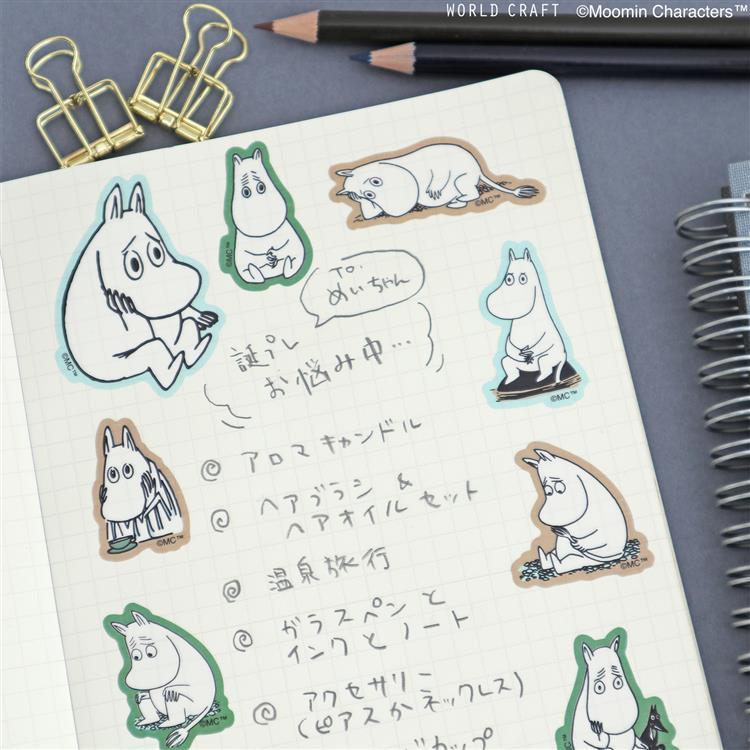 WORLD CRAFT ©Moomin Characters™
©MC™
©MC™
©MC™
©MC™
©MC™
©MC™
©MC™
©MC™
めいちゃん
誕プレ
お悩み中…
アロマキャンドル
ヘアブラシ &
ヘアオイルセット
温泉旅行
ガラスペンと
インクとノート
アクセサリー
(ピアスかネックレス)